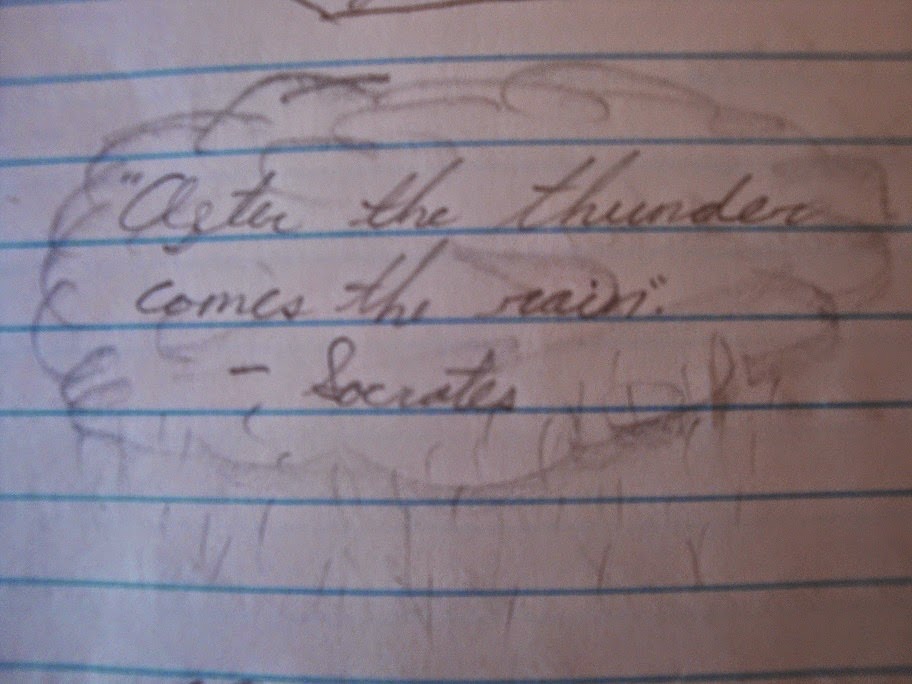 "After the thunder
comes the rain".
- Socrates